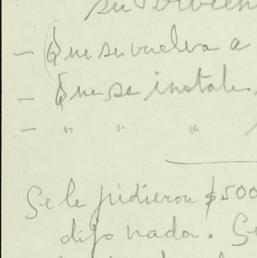 su
- Que se vuelva a
- Que se instale
- " " "
Se le pidieron $500
dijo nada. Se